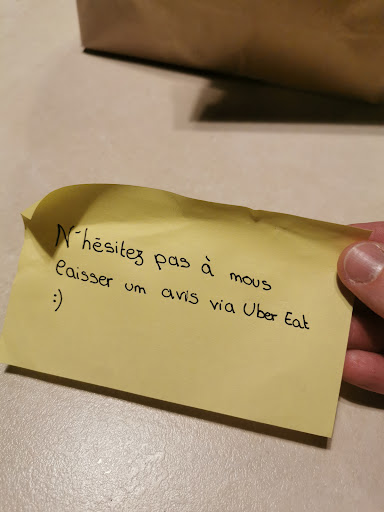 N'hésitez pas à nous
laisser un avis via Uber Eat
:)